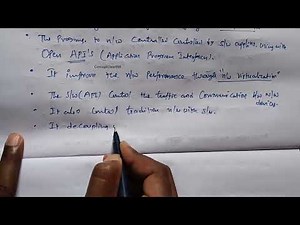 • The Process to n/w Controller Controlled by s/w applica. along with
Open API's (Application Program Interface).
• It improve the n/w Performance through n/w Virtualization
• The S/w (API) Control the traffic and Communication b/w H/w
devices.
• It also Control tradition n/w with S/w.
• It decoupling